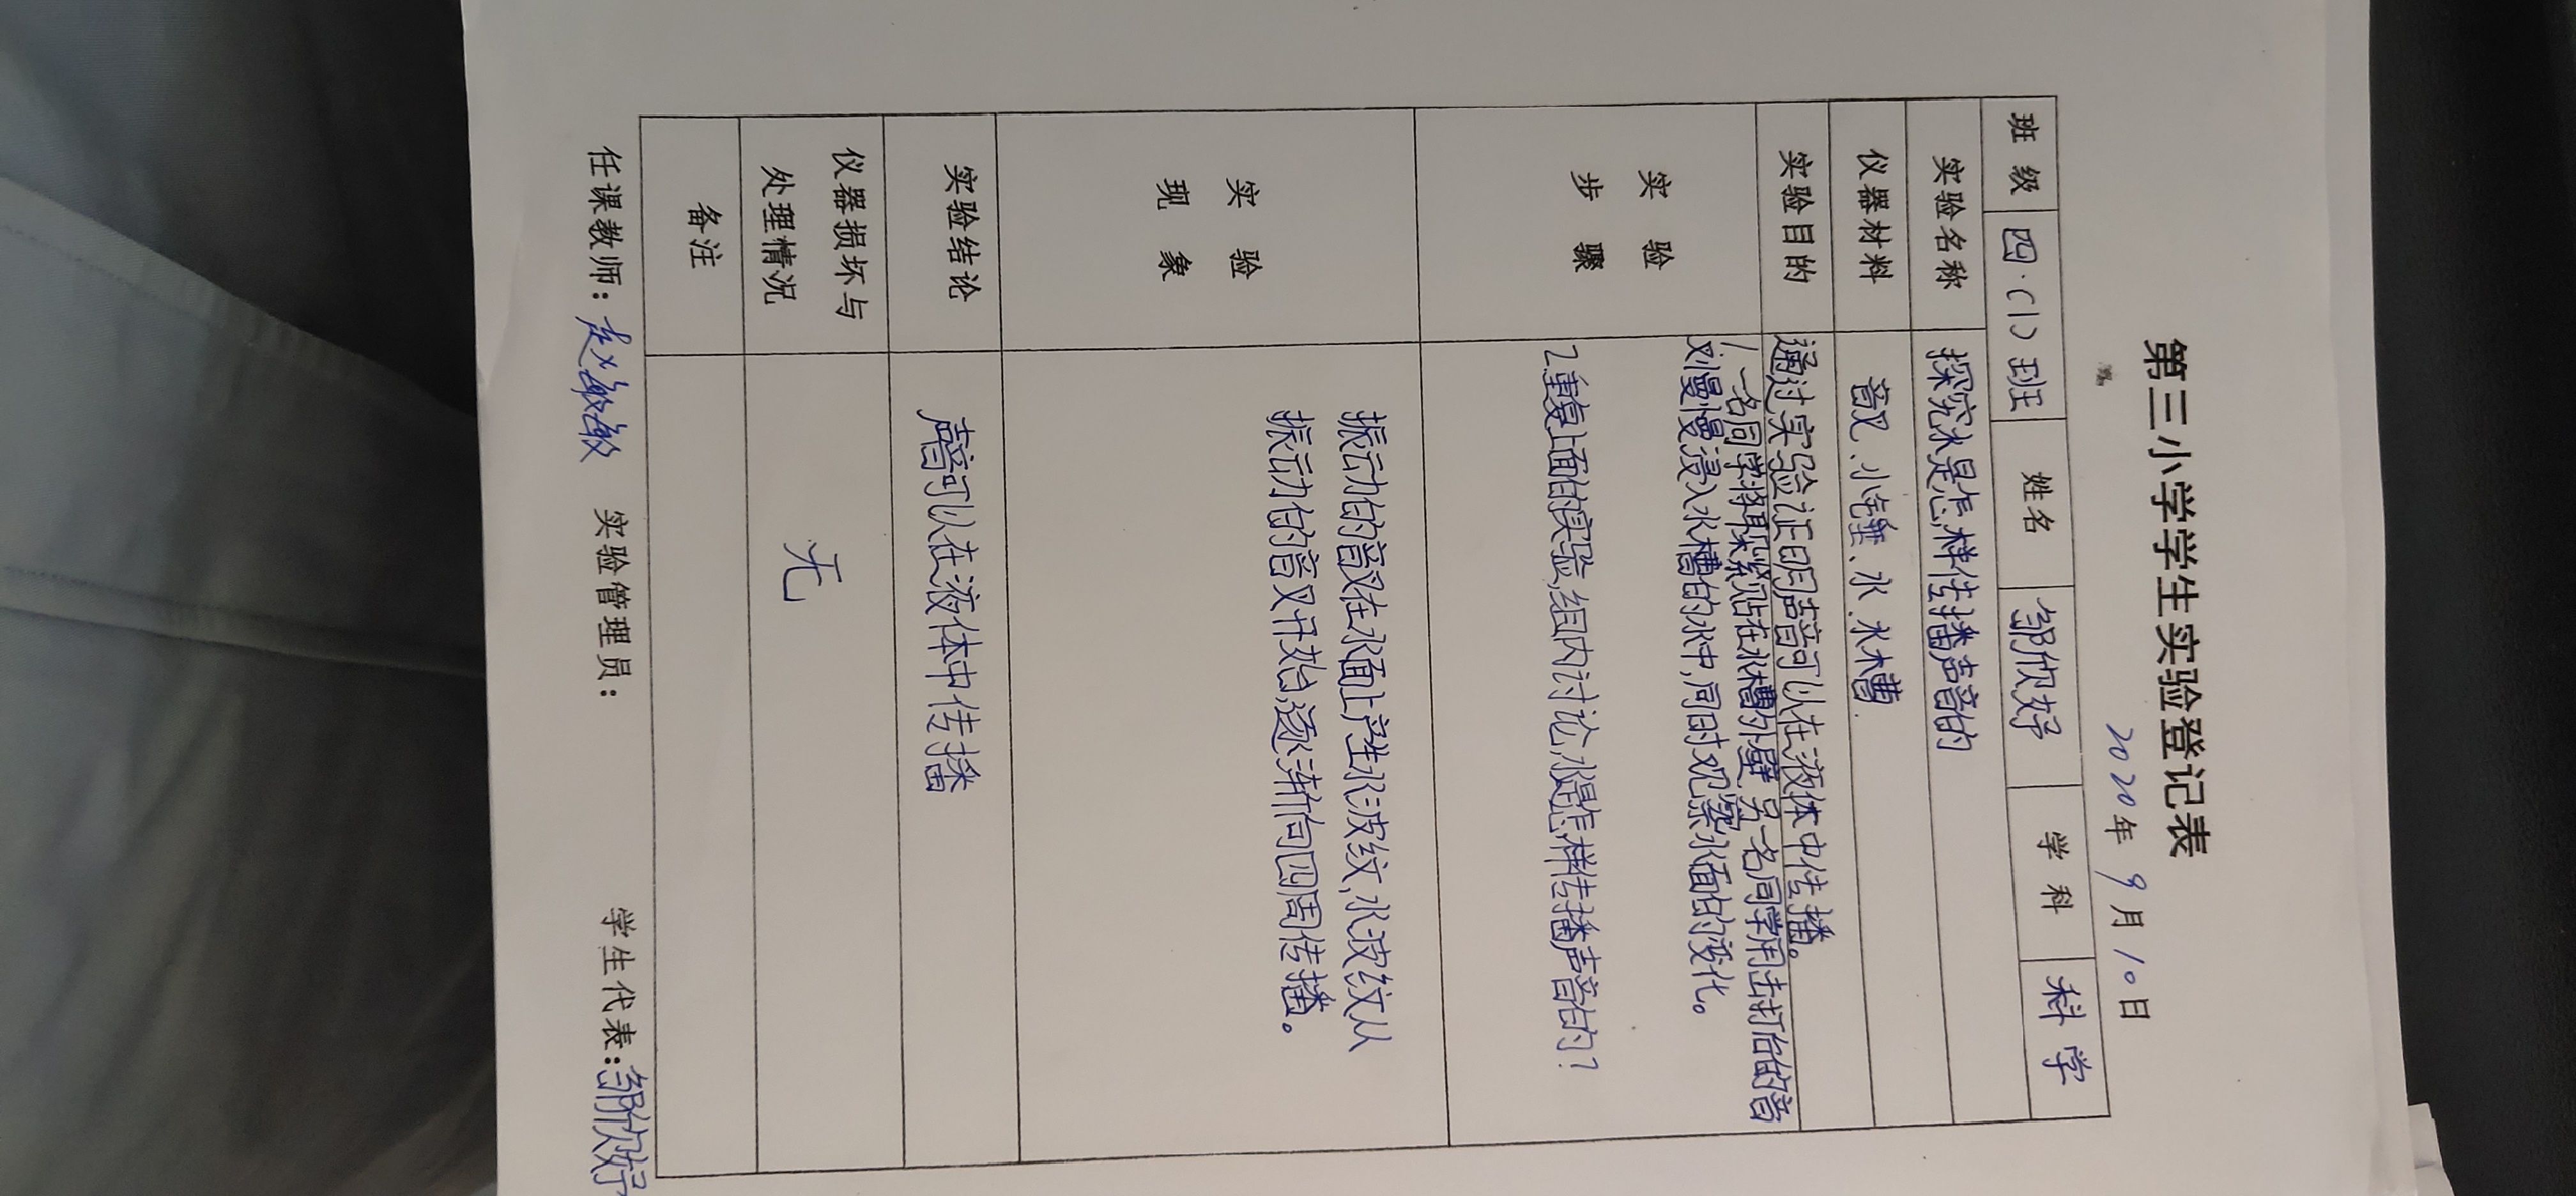 第三小学学生实验登记表
2020年9月10日
班级 四.(1)班 姓名 邹欣妤 学科 科学
实验名称 探究水是怎样传播声音的
仪器材料 音叉、小锤、水、水槽.
实验目的 通过实验证明声音可以在液体中传播。
实验步骤
1.一名同学将耳朵紧贴在水槽外壁,另一名同学用击打后的音
叉慢慢浸入水槽的水中,同时观察水面的变化。
2.重复上面的实验,组内讨论,水是怎样传播声音的?
实验现象
振动的音叉在水面上产生水波纹,水波纹从
振动的音叉开始,逐渐向四周传播。
实验结论 声音可以在液体中传播
仪器损坏与
处理情况 无
备注
任课教师:赵敏敏 实验管理员: 学生代表:邹欣妤